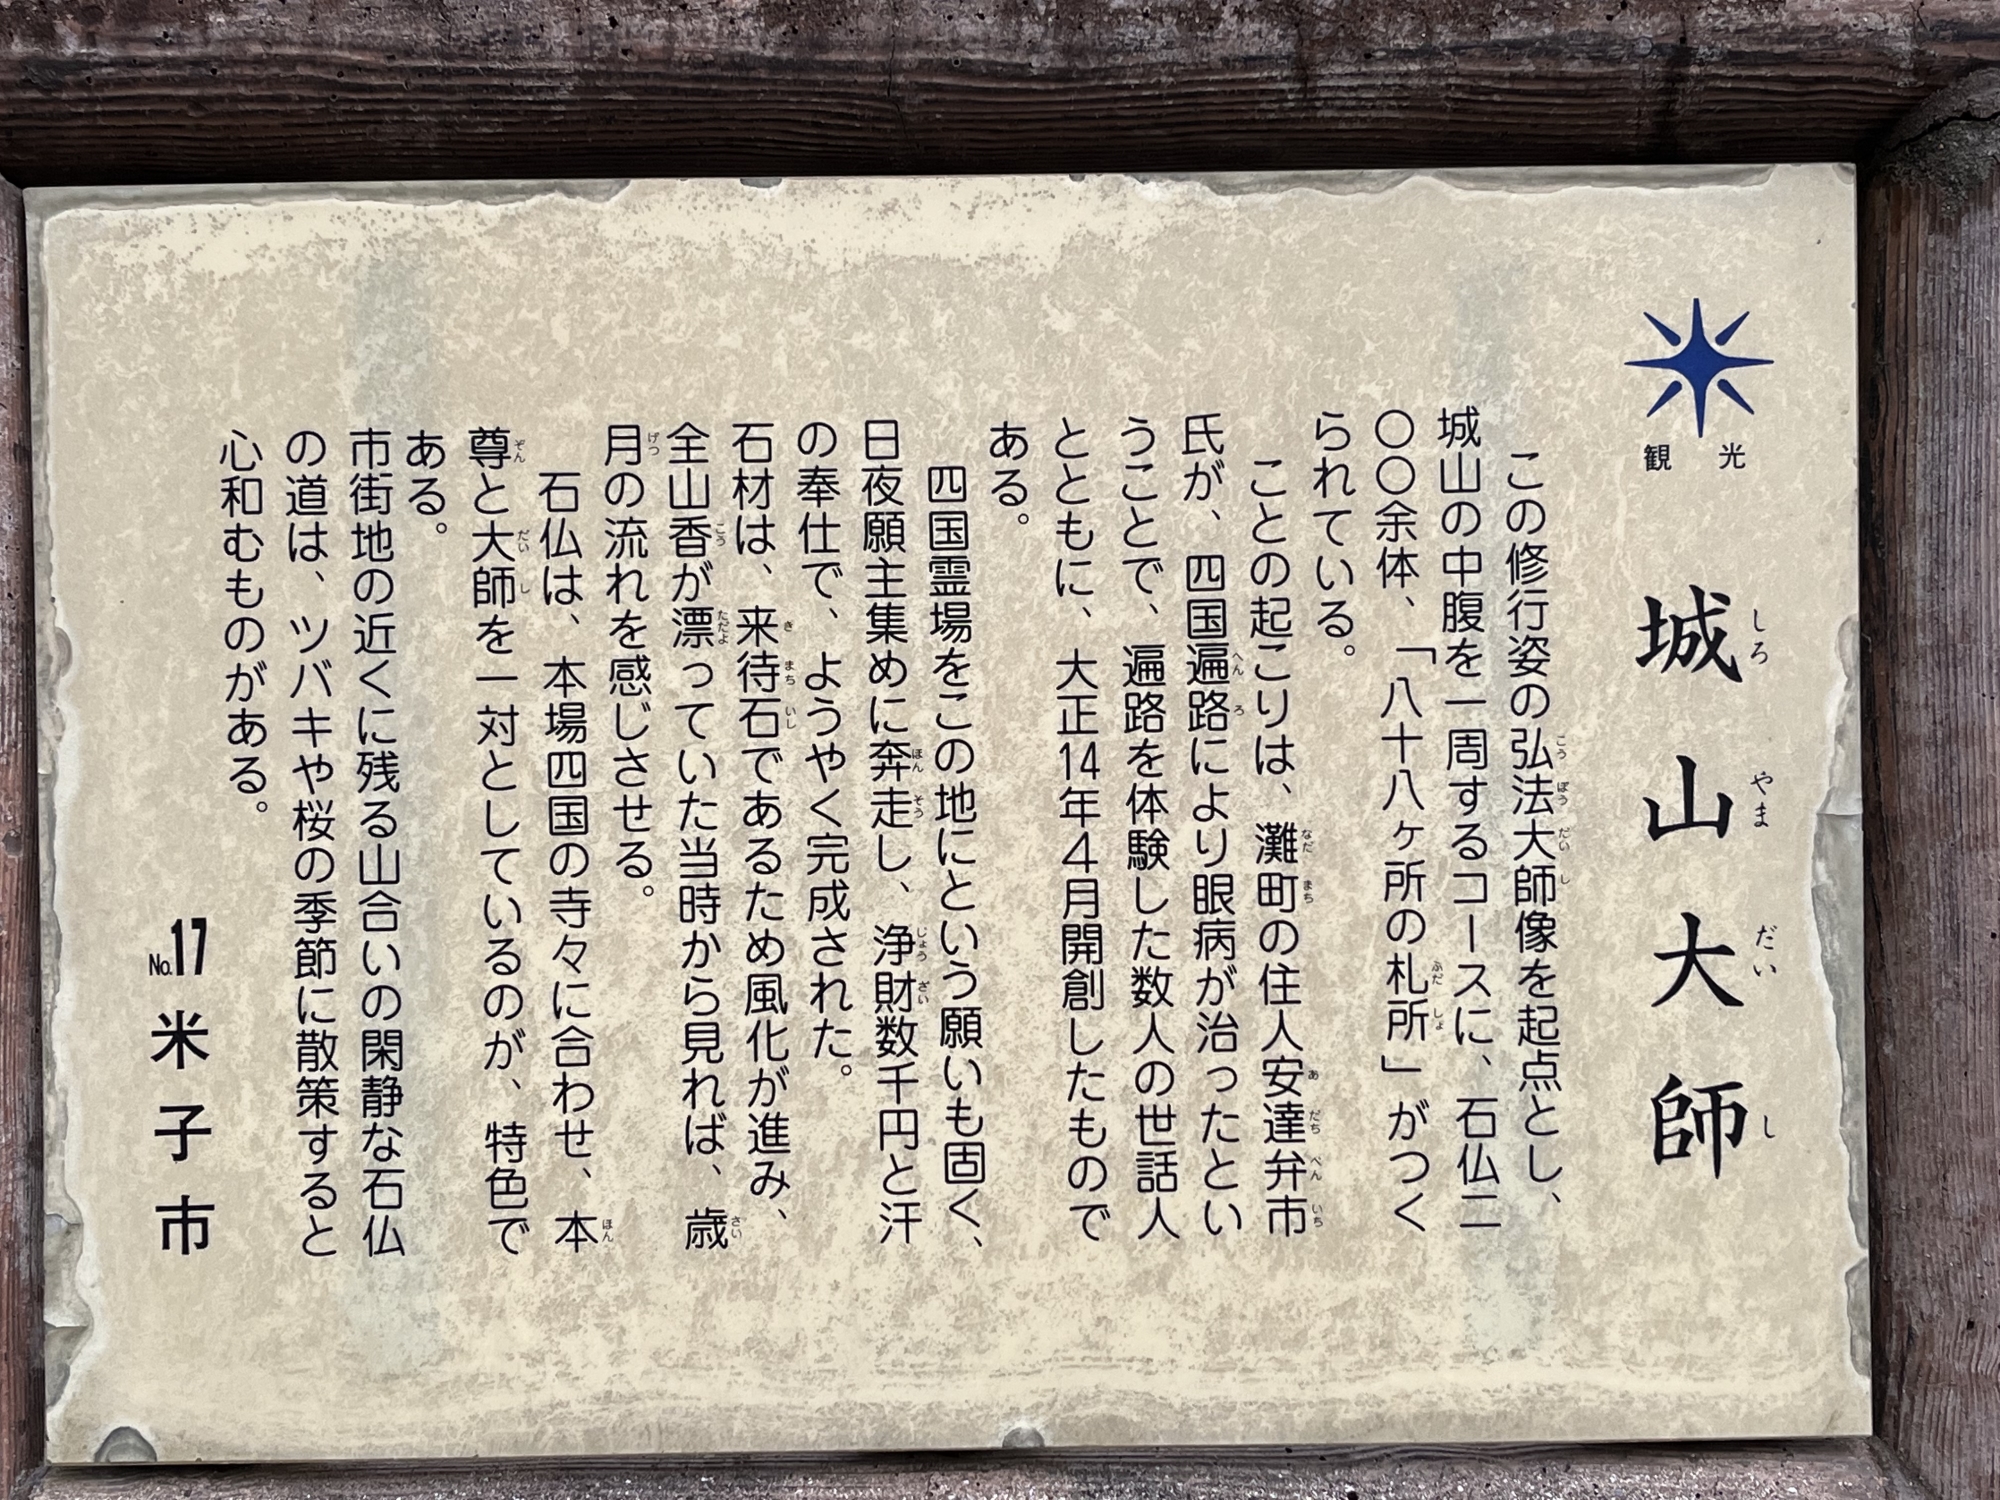 観光
城山大師
しろやまだいし
この修行姿の弘法大師像を起点とし、
城山の中腹を一周するコースに、石仏二
〇〇余体、「八十八ヶ所の札所」がつく
られている。
ことの起こりは、灘町の住人安達弁市
氏が、四国遍路により眼病が治ったとい
うことで、遍路を体験した数人の世話人
とともに、大正14年4月開創したもので
ある。
四国霊場をこの地にという願いも固く、
日夜願主集めに奔走し、浄財数千円と汗
の奉仕で、ようやく完成された。
石材は、来待石であるため風化が進み、
全山香が漂っていた当時から見れば、歳
月の流れを感じさせる。
石仏は、本場四国の寺々に合わせ、本
尊と大師を一対としているのが、特色で
ある。
市街地の近くに残る山合いの閑静な石仏
の道は、ツバキや桜の季節に散策すると
心和むものがある。
No.17 米子市